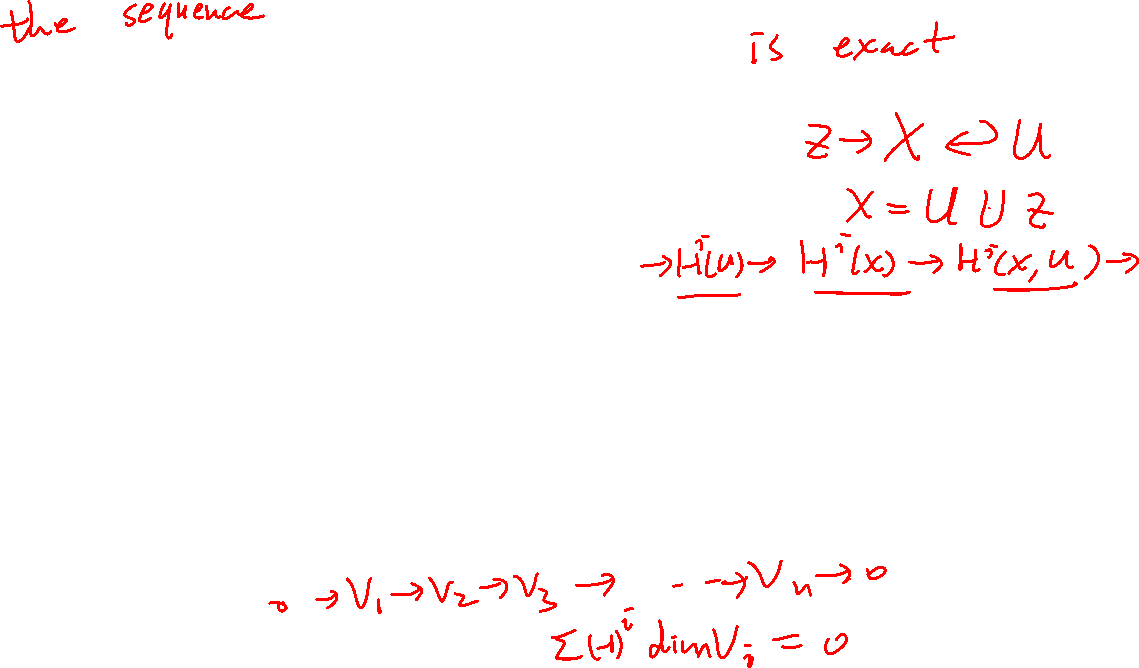 the sequence
is exact
Z → X ↩ U
X = U ∪ Z
→ Hⁱ(U) → Hⁱ(X) → Hⁱ(X, U) →
0 → V₁ → V₂ → V₃ → · · → Vₙ → 0
Σ(-1)ⁱ dim Vᵢ = 0